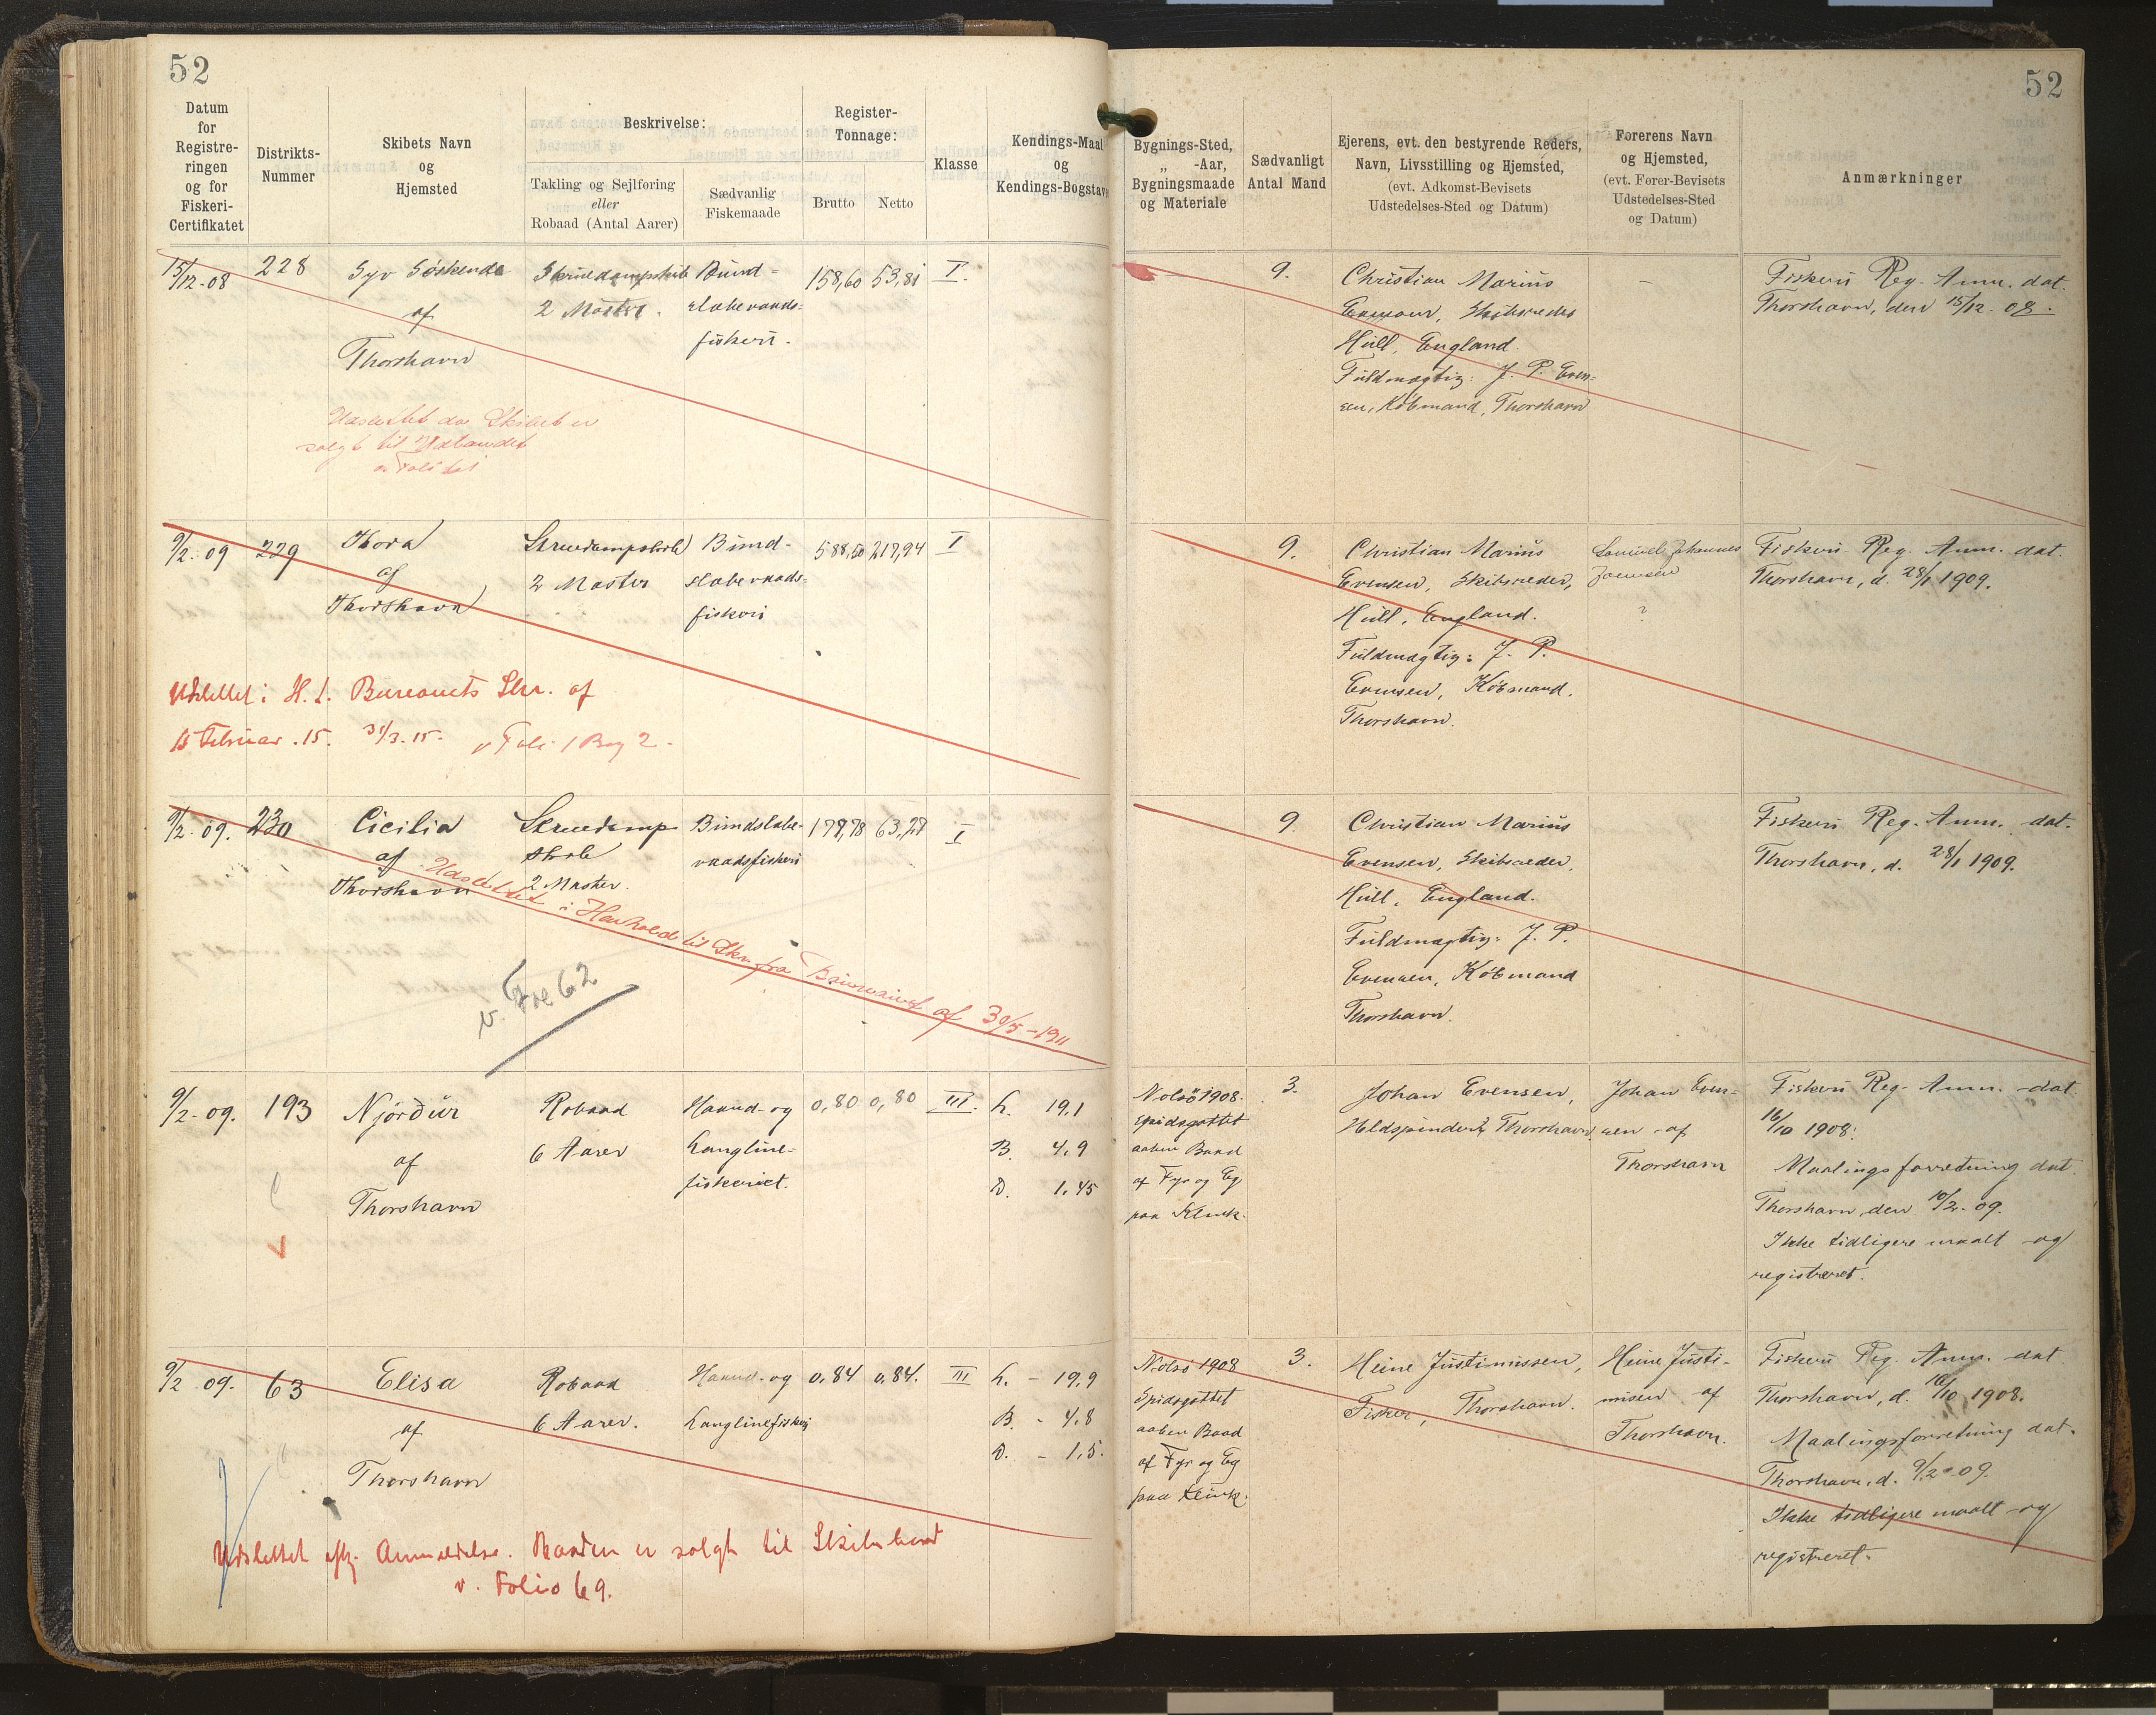 52
52
Datum
for
Registre-
ringen
og for
Fiskeri-
Certifikatet
Distrikts-
Nummer
Skibets Navn
og
Hjemsted
Beskrivelse:
Takling og Sejlføring
eller
Robaad (Antal Aarer)
Sædvanlig
Fiskemaade
Register-
Tonnage:
Brutto
Netto
Klasse
Kendings-Maal
og
Kendings-Bogstave
Bygnings-Sted,
„ -Aar,
Bygningsmaade
og Materiale
Sædvanligt
Antal Mand
Ejerens, evt. den bestyrende Reders,
Navn, Livsstilling og Hjemsted,
(evt. Adkomst-Bevisets
Udstedelses-Sted og Datum)
Førerens Navn
og Hjemsted,
(evt. Fører-Bevisets
Udstedelses-Sted
og Datum)
Anmærkninger
15/12-08
228
Syv Søskende
af
Thorshavn
Skruedampskib
2 Master.
Bund-
slabevaads-
fiskeri.
158,60
53,81
I.
9.
Christian Marius
Evensen, Skibsreder
Hull, England.
Fuldmægtig: J. P. Even-
sen, Købmand, Thorshavn
Fiskeri Reg. Anm. dat.
Thorshavn, den 15/12-08.
Udslettet da Skibet er
solgt til Udlandet
9/2-09
229
Thora
af
Thorshavn
Skruedampskib
2 Master
Bund-
slabevaads-
fiskeri
588,50
217,94
I
9.
Christian Marius
Evensen, Skibsreder,
Hull, England.
Fuldmægtig: J. P.
Evensen, Købmand.
Thorshavn.
Samuel Johannes
Joensen
?
Fiskeri Reg. Anm. dat.
Thorshavn, d. 28/1 1909.
Udslettet i H. t. Bureauets Skr. af
15 Februar. 15. 31/3. 15. v Foli 1 Bog 2.
9/2-09.
230
Cicilia
af
Thorshavn
Skruedamp
skib
2 Master.
Bundslabe-
vaadsfiskeri
179,78
63,27
I
9.
Christian Marius
Evensen, Skibsreder,
Hull, England.
Fuldmægtig: J. P.
Evensen, Købmand
Thorshavn.
Fiskeri Reg. Anm. dat.
Thorshavn, d. 28/1 1909.
Udslettet i Henhold til Skr. fra Bureauet af 30/5-1911
9/2-09.
193
Njørdur
af
Thorshavn
Robaad
6 Aarer
Haand- og
Langline-
fiskeriet.
0,80
0,80
III.
L. 19,1
B. 4,9
D. 1,45
Nolsö 1908.
Spidsgattet
aaben Baad
af Fyr og Eg
paa Klink.
3.
Johan Evensen,
Uldspinder, Thorshavn
Johan Even-
sen af
Thorshavn
Fiskeri Reg. Anm. dat.
16/10 1908.
Maalingsforretning dat.
Thorshavn, den 10/2-09.
Ikke tidligere maalt og
registreret.
9/2 09.
63
Elisa
af
Thorshavn
Robaad
6 Aarer.
Haand- og
Linglinefiskeri
0,84
0,84.
III
L. - 19,9
B. - 4,8
D. - 1,5.
Nolsö 1908
Spidsgattet
aaben Baad
af Fyr og Eg
paa Klink.
3.
Heine Justinussen,
Fisker, Thorshavn.
Heine Justi-
nusen af
Thorshavn.
Fiskeri Reg. Anm. dat
Thorshavn, d. 16/10 1908.
Maalingsforretning dat.
Thorshavn, d. 9/2-09.
Ikke tidligere maalt og
registreret.
Udslettet eftr. Anmeldelse. Baaden er solgt til
v. Folio 69.